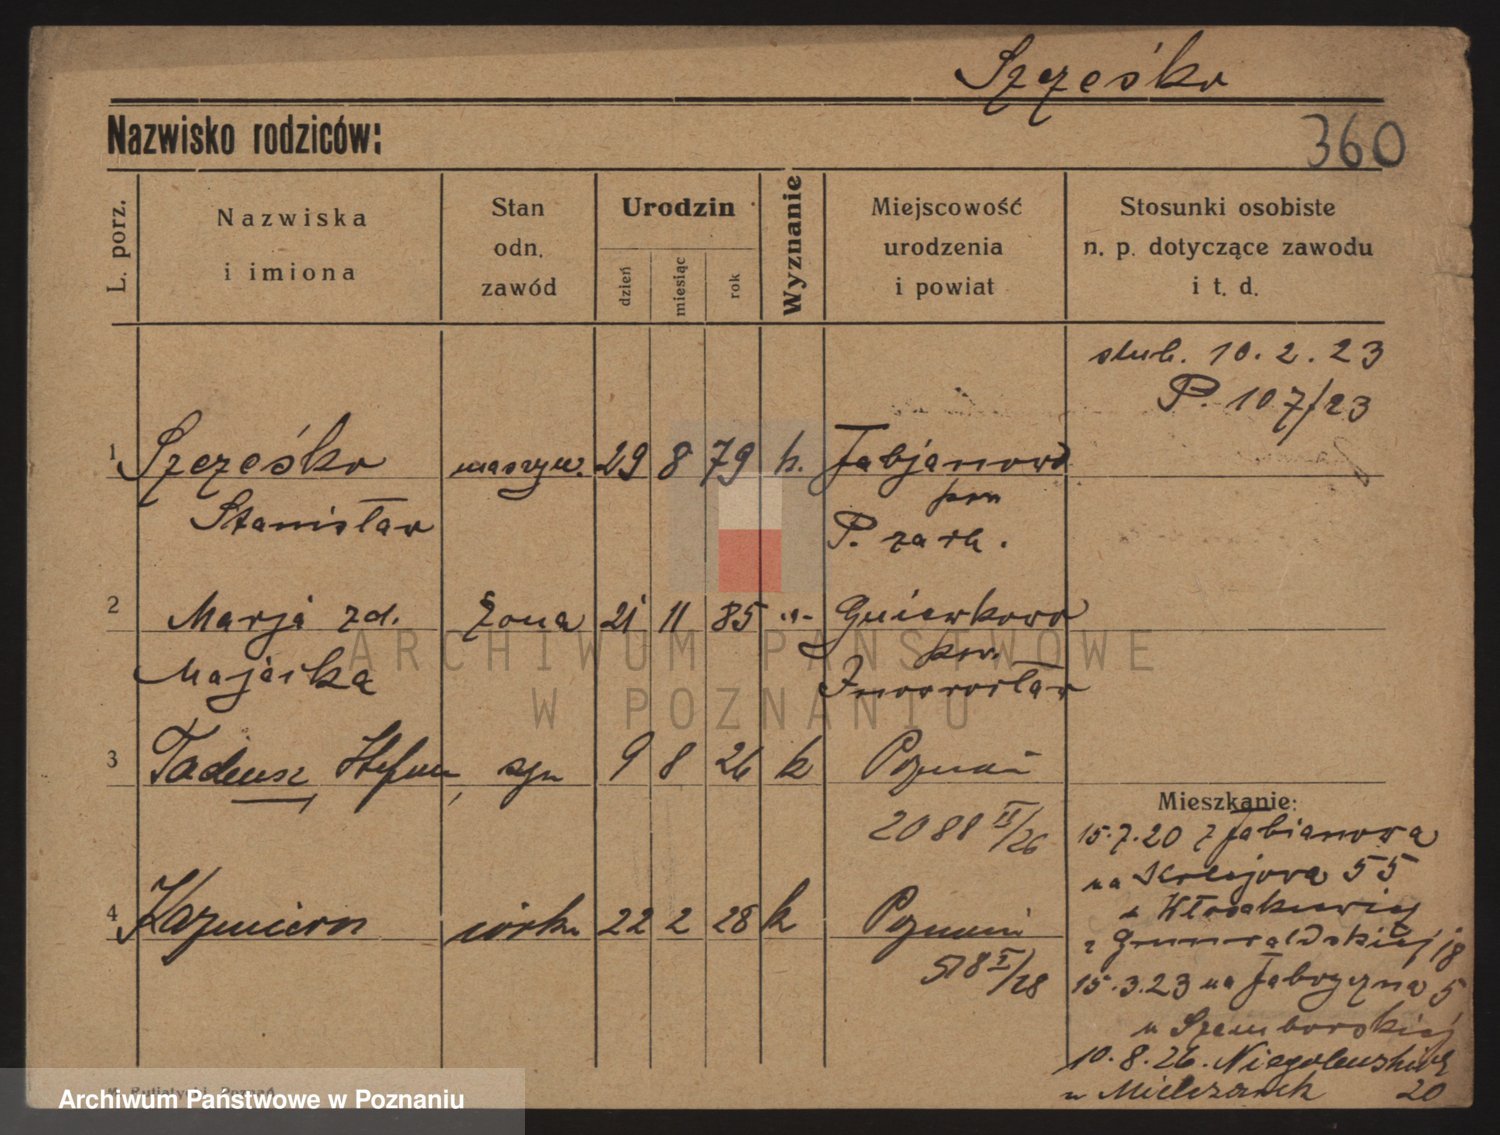 Szcześko
Nazwisko rodziców:
360
L. porz.
Nazwiska
i imiona
Stan
odn.
zawód
Urodzin
dzień
miesiąc
rok
Wyznanie
Miejscowość
urodzenia
i powiat
Stosunki osobiste
n. p. dotyczące zawodu
i t. d.
slub. 10.2.23
P. 107/23
1 Szcześko maszyn. 29 8 79 k. Fabjanowo
pow
Stanisław P. zach.
2 Marja zd. żona 21 11 85 -"- Gniewkowo
pow.
Majaika Inowrocław
3 Tadeusz Stefan, syn 9 8 26 k Poznań
2088 II/26
Mieszkanie:
15.7.20 z Fabianowa
na 55
4 Kazimiera córka 22 2 28 k Poznań
z Grunwaldskiej 18
518 I/28
15.3.23 na Fabryczną 5
u Szemborskiej
10.8.26. Niegolewskich
u Mielczarek 20
ARCHIWUM PAŃSTWOWE
W POZNANIU
Archiwum Państwowe w Poznaniu